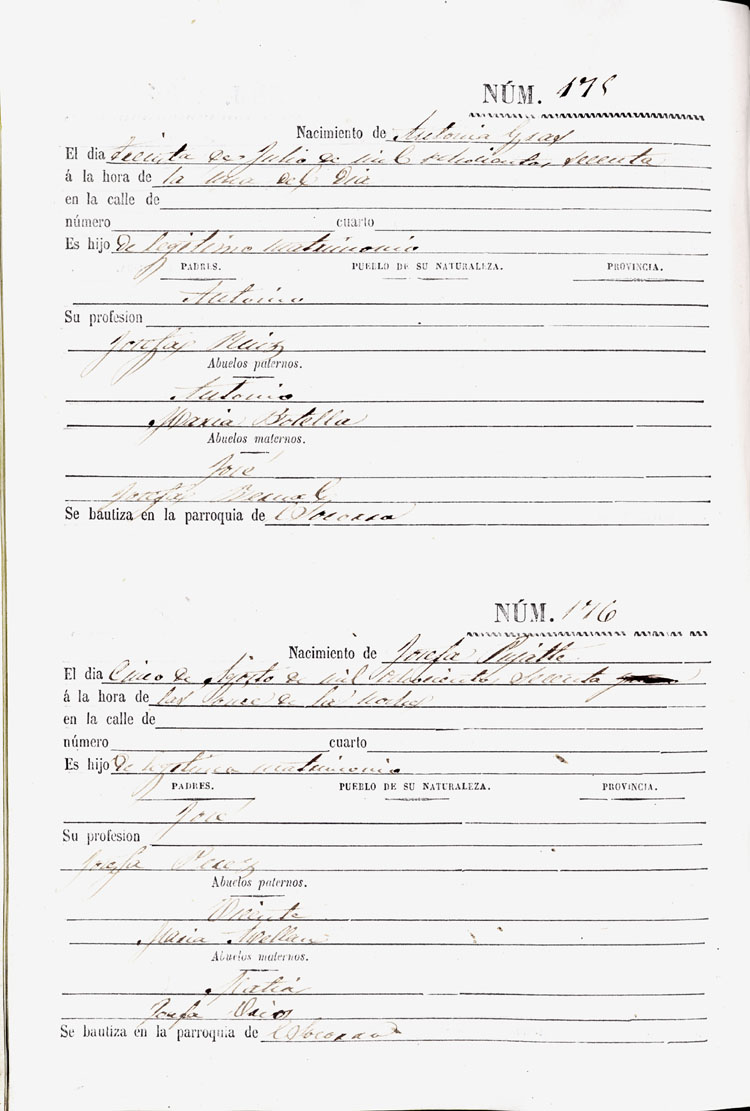 NÚM. 175
Nacimiento de Antonia Gras
El dia Treinta de Julio de mil ochocientos sesenta
á la hora de la una del Dia
en la calle de
número cuarto
Es hijo de legitimo matrimonio
PADRES. PUEBLO DE SU NATURALEZA. PROVINCIA.
Antonio
Su profesion
Josefa Ruiz
Abuelos paternos.
Antonio
Maria Botella
Abuelos maternos.
José
Josefa Bernal
Se bautiza en la parroquia de el Socorro
NÚM. 176
Nacimiento de Josefa Pujalte
El dia Cinco de Agosto de mil ochocientos sesenta
á la hora de las once de la noche
en la calle de
número cuarto
Es hijo de legitimo matrimonio
PADRES. PUEBLO DE SU NATURALEZA. PROVINCIA.
José
Su profesion
Josefa Perez
Abuelos paternos.
Vicente
Maria Avellan
Abuelos maternos.
Matia
Josefa
Se bautiza en la parroquia de el Socorro